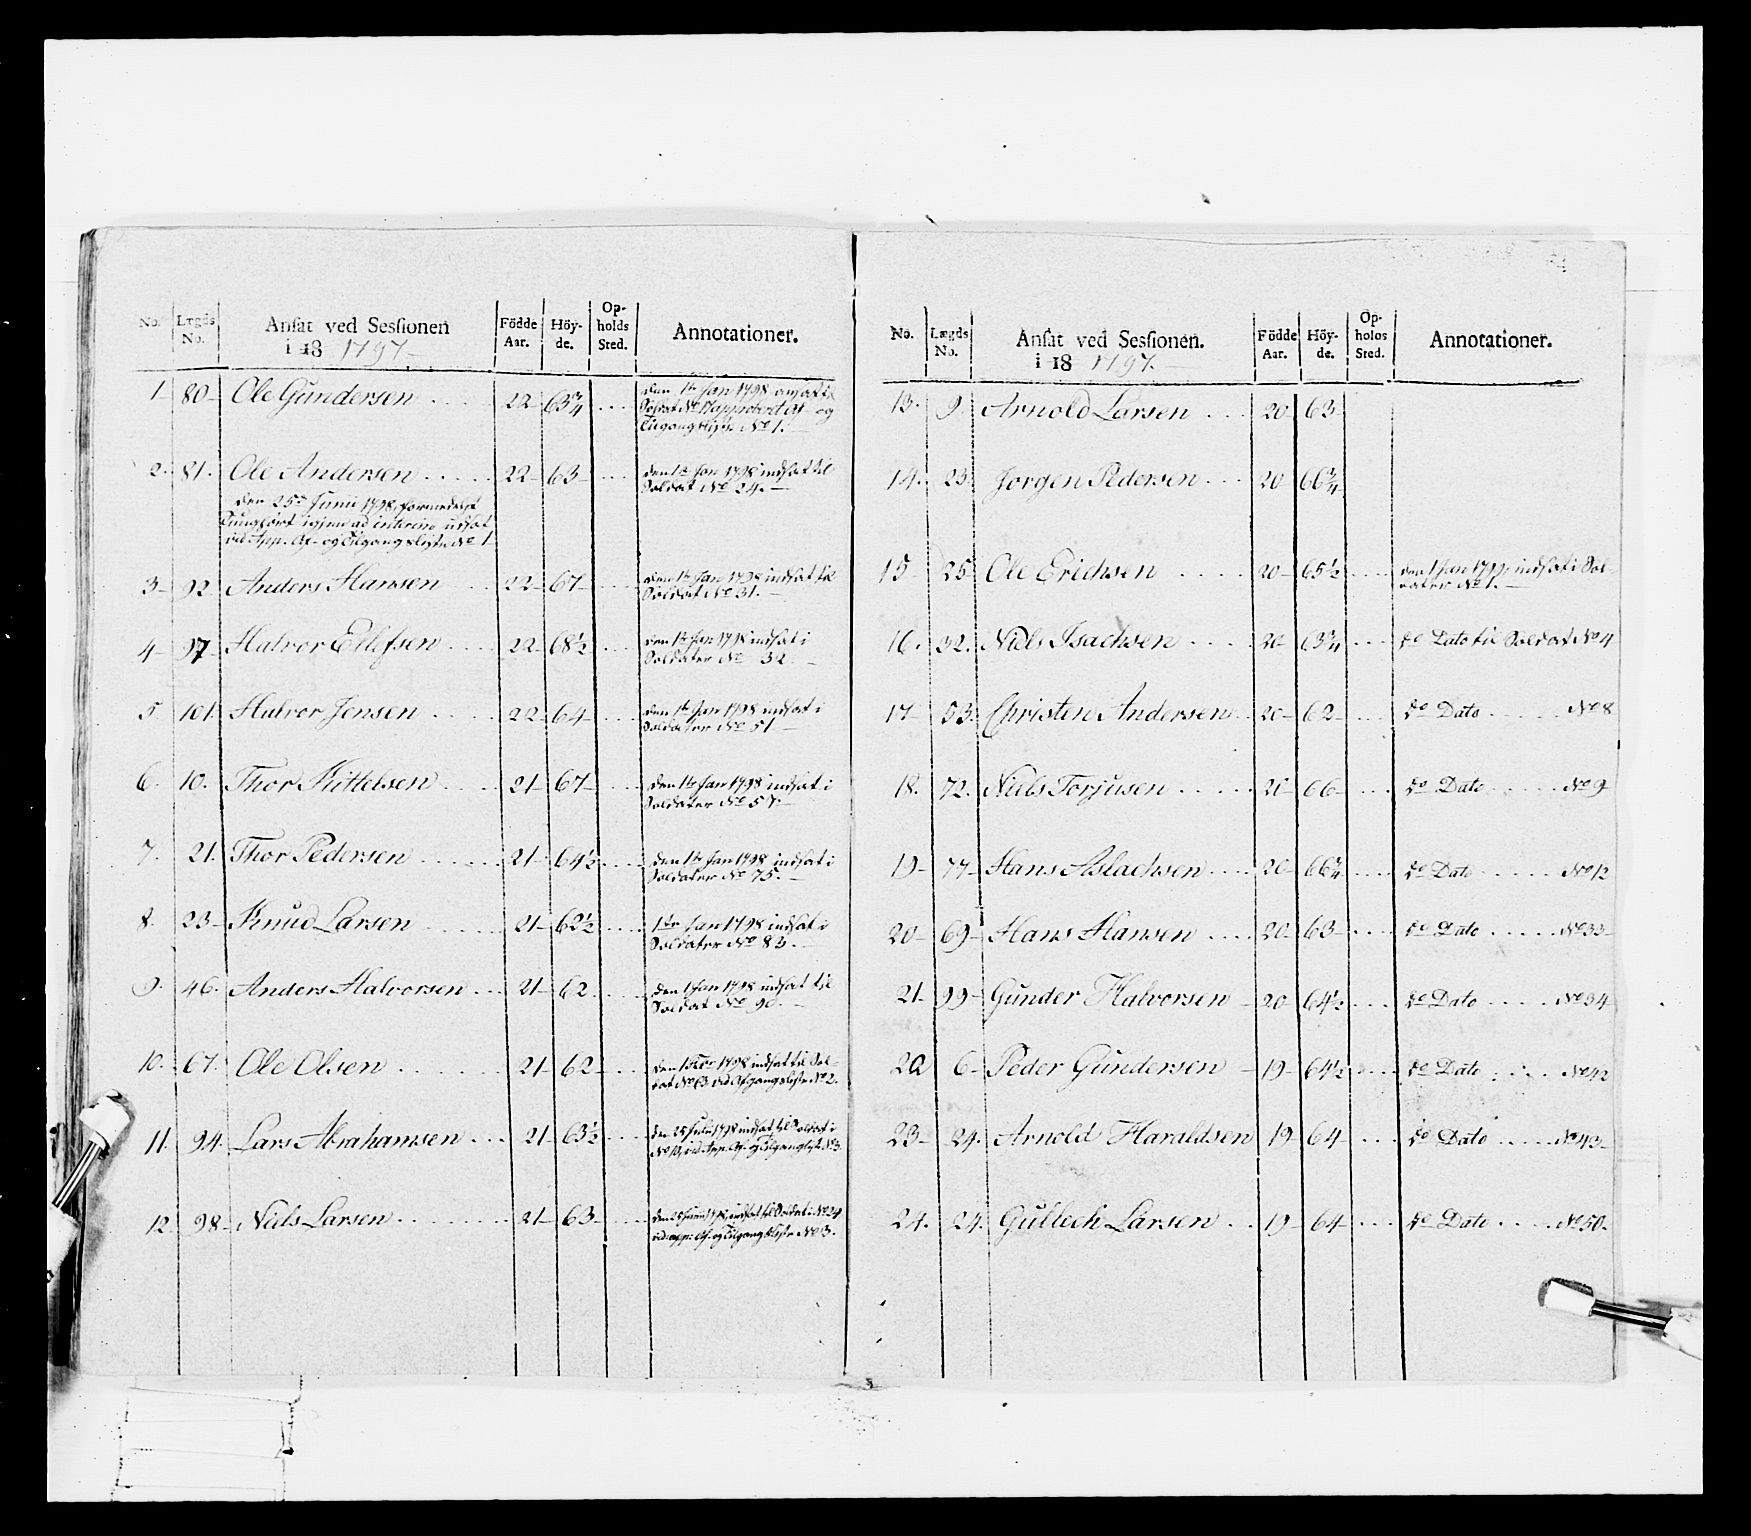 No. Lægds No. Ansat ved Sessionen i 18 1797 Födde Aar. Höy- de. Op- holds Sted. Annotationer.
1 80 Ole Gundersen 22 63¾ den 1te Jan 1798 ansat i
Soldat No approbert Af- og
Tilgangsliste No 1.
2. 81. Ole Andersen 22 63 den 1te Jan 1798 indsat til
Soldat No 24.
den 25de Junii 1798, formedelst
igjen ad interim udsat
ved App. Af- og Tilgangsliste No 1
3 92 Anders Hansen 22 67 den 1te Jan 1798 indsat til
Soldat No 31.
4 97 Halvor Ellefsen 22 68½ den 1te Jan 1798 indsat i
Soldater No 32
5 101 Halvor Jensen 22 64 den 1te Jan 1798 indsat i
Soldater No 51
6. 10. Thor Kittelsen 21 67 den 1te Jan 1798 indsat i
Soldater No
7. 21. Thor Pedersen 21 64½ den 1te Jan 1798 indsat i
Soldater No 75.
8. 23 Knud Larsen 21 62½ 1ste Jan 1798 indsat i
Soldater No 83.
9. 46. Anders Halvorsen 21 62 den 1 Jan 1798 indsat til
Soldat No 90.
10. 67. Ole Olsen 21 62 den 1798 indsat til Sol-
dat No 63 ved Afgangsliste No 2.
11. 94. Lars Abrahamsen 21 63½ den 25 Junii 1798 indsat til Soldat i
No 10, ved App. Af- og Tilgangsliste No 3.
12. 98 Niels Larsen 21 63 den 25 Junii 1798, indsat til Soldat i No 24
ved app: Af- og Tilgangsliste No 3.
No. Lægds No. Ansat ved Sessionen. i 18 1797. Födde Aar. Höy- de. Op- holds Sted. Annotationer.
13. 9. Arnold Larsen 20 63
14. 23. Jorgen Pedersen 20 66¾
15 25 Ole Erichsen 20 65½ den 1 Jan 1799 indsat i Sol-
dater No 1.
16. 32. Niels Isachsen 20 63¾ do Dato til Soldat No 4
17 53. Christen Andersen 20 62 do Dato No 8
18. 72. Niels Torjusen 20 66 do Dato No 9
19 77 Hans Aslachsen 20 66¾ do Dato No 12
20 69 Hans Hansen 20 63 do Dato No 33
21 99 Gunder Halvorsen 20 64½ do Dato No 34
22 6 Peder Gundersen 19 64½ do Dato No 42
23 24. Arnold Haraldsen 19 64 do Dato No 43
24. 24. Gullech Larsen 19 64 do Dato No 50.